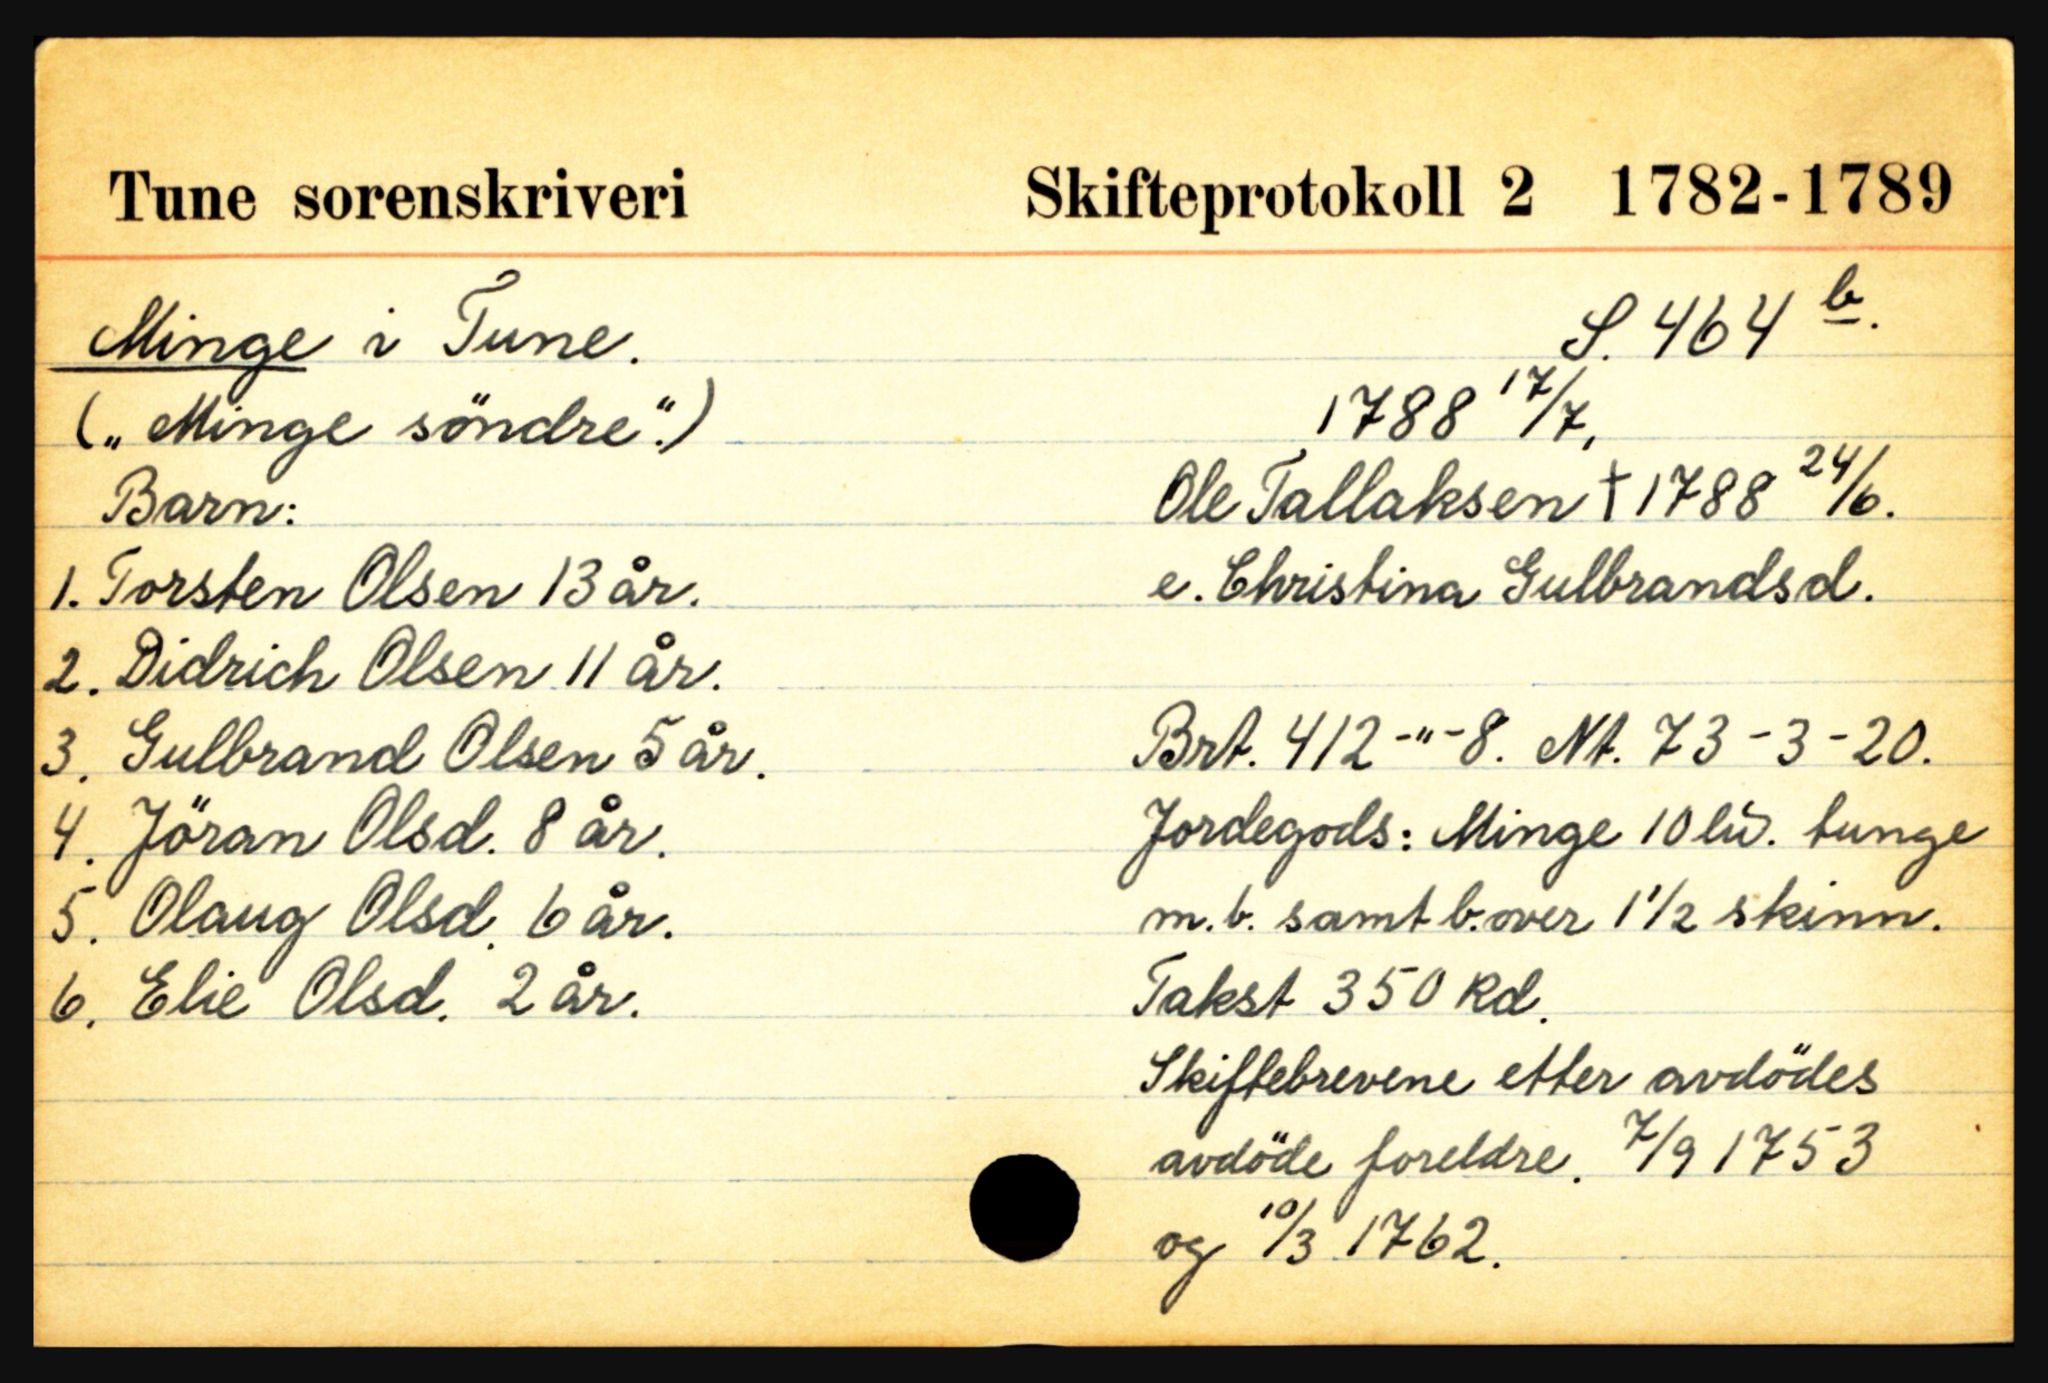 Tune sorenskriveri
Skifteprotokoll 2 1782-1789
Minge i Tune.
("Minge söndre".)
Barn:
1. Torsten Olsen 13 år.
2. Didrich Olsen 11 år.
3. Gulbrand Olsen 5 år.
4. Jöran Olsd. 8 år.
5. Olaug Olsd. 6 år.
6. Elie Olsd. 2 år.
S. 464 b.
1788 17/7,
Ole Tallaksen † 1788 24/6.
e. Christina Gulbrandsd.
Brt. 412-"-8. Nt. 73-3-20.
Jordegods: Minge 10 tunge
m.b. samt b.over 1 1/2 skinn.
Takst 350 Rd.
Skiftebrevene etter avdödes
avdöde foreldre. 7/9 1753
og 10/3 1762.